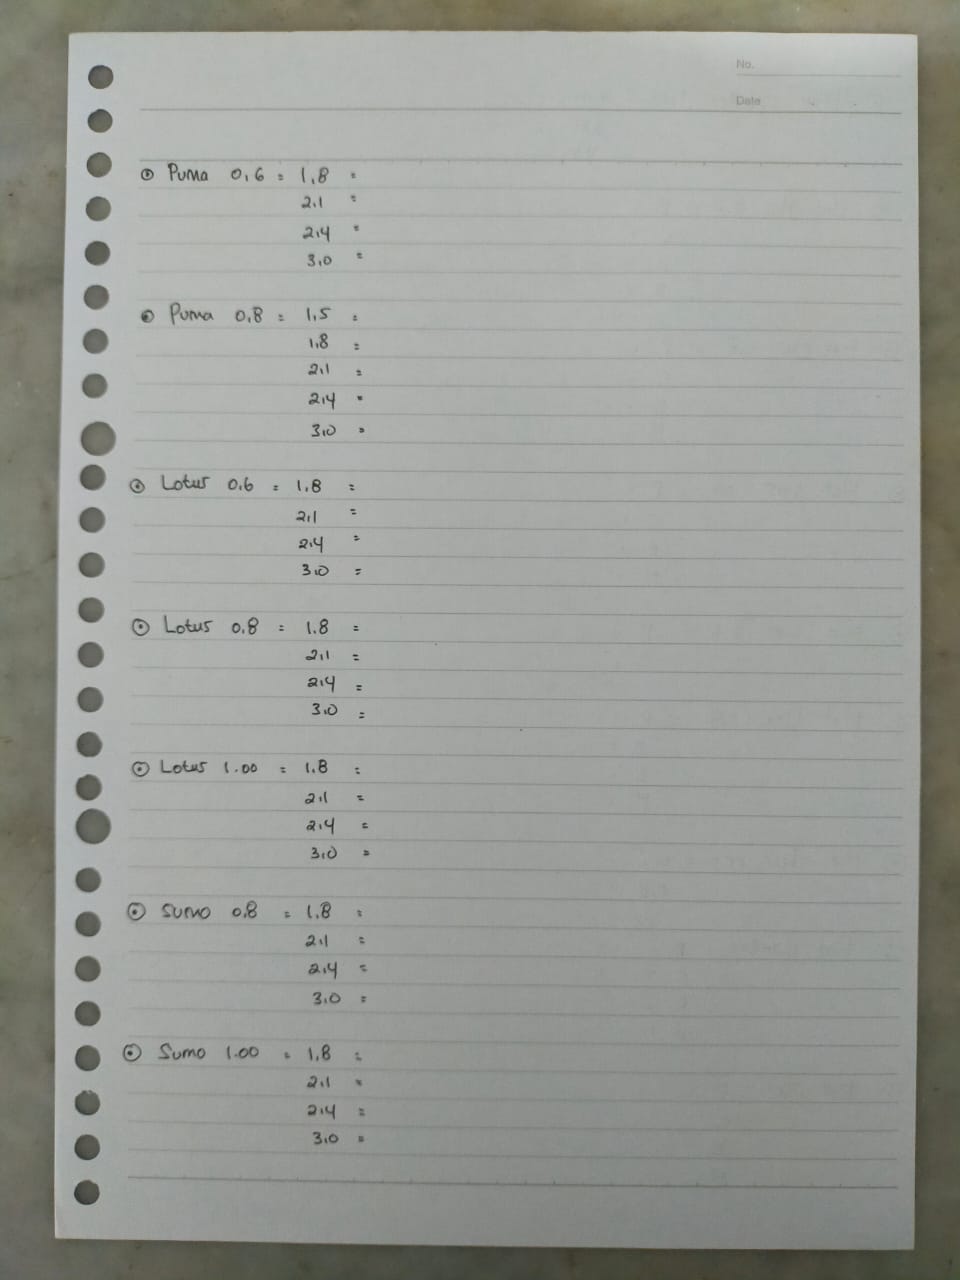 No.
Date
⊙ Puma 0,6 = 1,8 =
2,1 =
2,4 =
3,0 =
⊙ Puma 0,8 = 1,5 =
1,8 =
2,1 =
2,4 =
3,0 =
⊙ Lotus 0,6 = 1,8 =
2,1 =
2,4 =
3,0 =
⊙ Lotus 0,8 = 1.8 =
2,1 =
2,4 =
3,0 =
⊙ Lotus 1.00 = 1.8 =
2,1 =
2,4 =
3,0 =
⊙ Sumo 0,8 = 1,8 =
2,1 =
2,4 =
3,0 =
⊙ Sumo 1.00 = 1,8 =
2,1 =
2,4 =
3,0 =